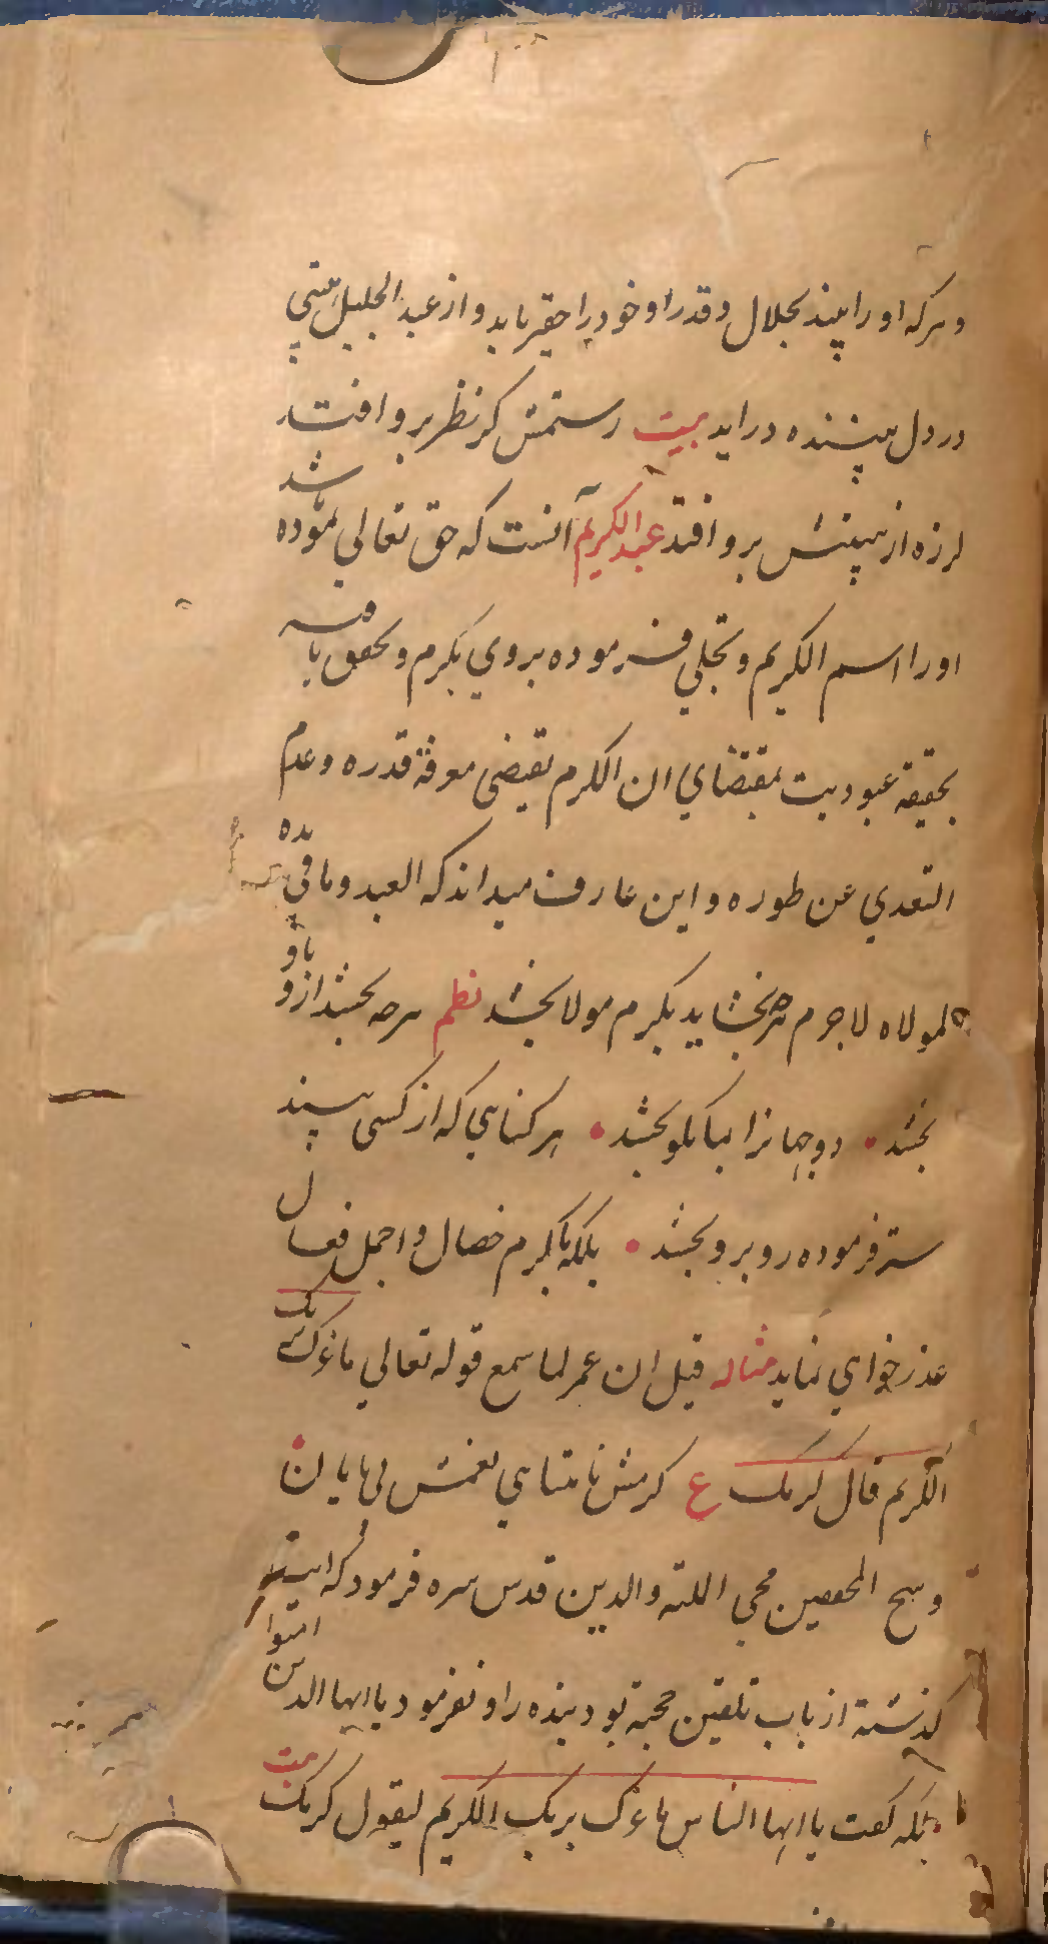 وهرکه او را بیند بجلال و قدر او خود را حقیر یابد و از عبد الجلیل هیبتی
در دل بیننده در اید بیت رستمش کر نظر برو افتد
لرزه از هیبتش برو افتد عبد الکریم آنست که حق تعالی نموده باشد
او را اسم الکریم و تجلی فرموده بروی بکرم و تحقق یافته
بحقیقة عبودیت بمقتضای ان الکرم یقتضی معرفة قدره و عدم
التعدی عن طوره و این عارف میداند که العبد وما فی یده
لمولاه لاجرم هرچه بخشاید بکرم مولا بخشد نظم هرچه بخشد ازو باو
بخشد • دو جهانرا بیا بکلو بخشد • هر کناهی که از کسی بیند
ستر فرموده روبرو بخشد • بلکه باکرم خصال و اجمل فعال
عذر خواهی نماید مثاله قیل ان عمر لما سمع قوله تعالی ما غرک بربک
الکریم قال کرمک ع کرمش نامتناهی نعمش بی پایان
و شیخ المحققین محی الملة والدین قدس سره فرمود که این
کذشته از باب تلقین حجة بود بنده را و نفرمود یا ایها الذین امنوا
بلکه کفت یا ایها الناس ما غرک بربک الکریم لیقول کرمک بیت